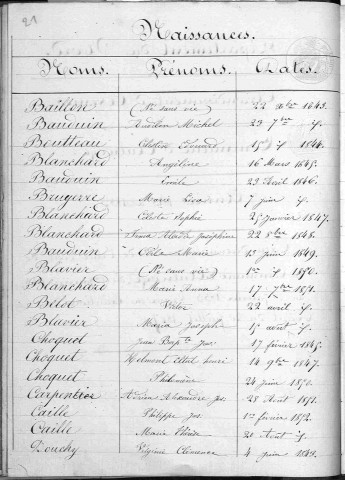 21
Naissances.
Noms. Prénoms. Dates.
Baillon (Né sans vie) 22 1843.
Bauduin Aurélien Michel 23 7bre if.
Boutteau Célestin Edouard 15 if 1844.
Blanchard Angéline 16 Mars 1845.
Bauduin Emile 23 Avril 1846.
Brugerre Marie 7 juin if.
Blanchard Céleste Sophie 25 Janvier 1847.
Blanchard Joséphine 22 8bre 1848.
Bauduin Odile Marie 15 juin 1849.
Blavier (Né sans vie) 1er if 1850.
Blanchard Marie Anna 17 7bre 1851.
Bélot Victor 22 avril if.
Blavier Maria Joseph 15 août if.
Choquet Jean Bapte Jos. 17 février 1845.
Choquet 14 9bre 1847.
Choquet Philomène 24 juin 1850.
Carpentier Adrien Alexandre Jos. 28 Août 1851.
Caille Philippe Jos. 1er février 1852.
Caille Marie 20 Août if.
Douchy Virginie Clémence 4 juin 1843.